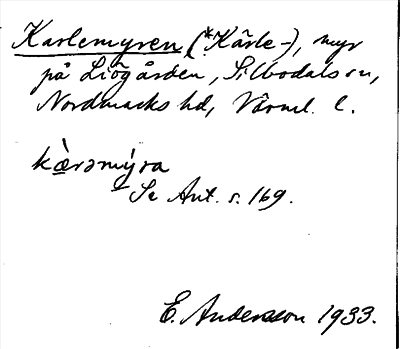 Karlemyren (*Kārle-), myr
på Liögården, Silbodals sn,
Nordmarks hd, Värml. l.
kæ̀rəmýra
Se Ant. s. 169.
E. Andersson 1933.